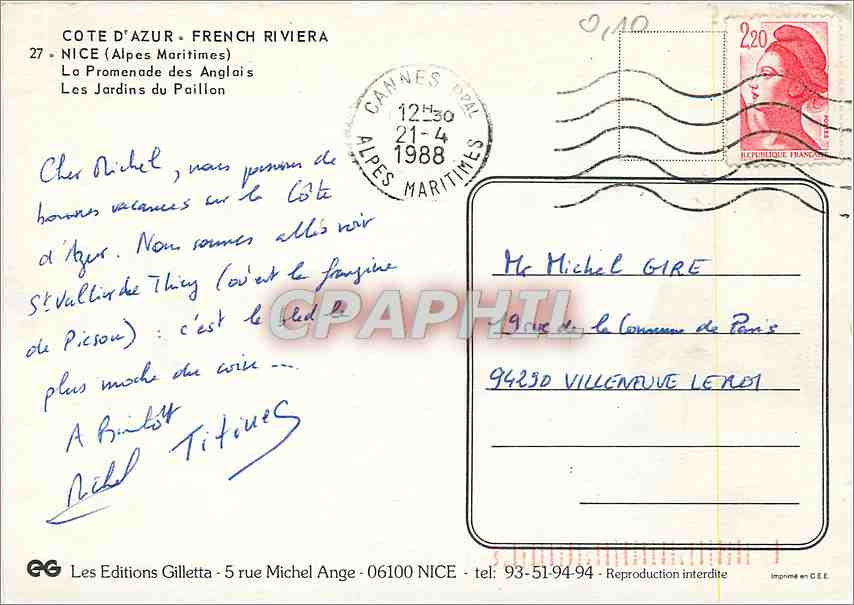 COTE D'AZUR - FRENCH RIVIERA
27 - NICE (Alpes Maritimes)
La Promenade des Anglais
Les Jardins du Paillon
0,10
CANNES PPAL
12H30
21-4
1988
ALPES MARITIMES
2,20
REPUBLIQUE FRANÇAISE
Cher Michel, nous passons de
bonnes vacances sur la Côte
d'Azur. Nous sommes allés voir
St Vallier de Thiey (où est la frangine
de Picsou) : c'est le bled le
plus moche du coin ...
A Bientôt
Michel Titines
Mr Michel GIRE
19 rue de la Commune de Paris
94290 VILLENEUVE LE ROI
CPAPHIL
EG Les Editions Gilletta - 5 rue Michel Ange - 06100 NICE - tel: 93-51-94-94 - Reproduction interdite
Imprimé en C.E.E.